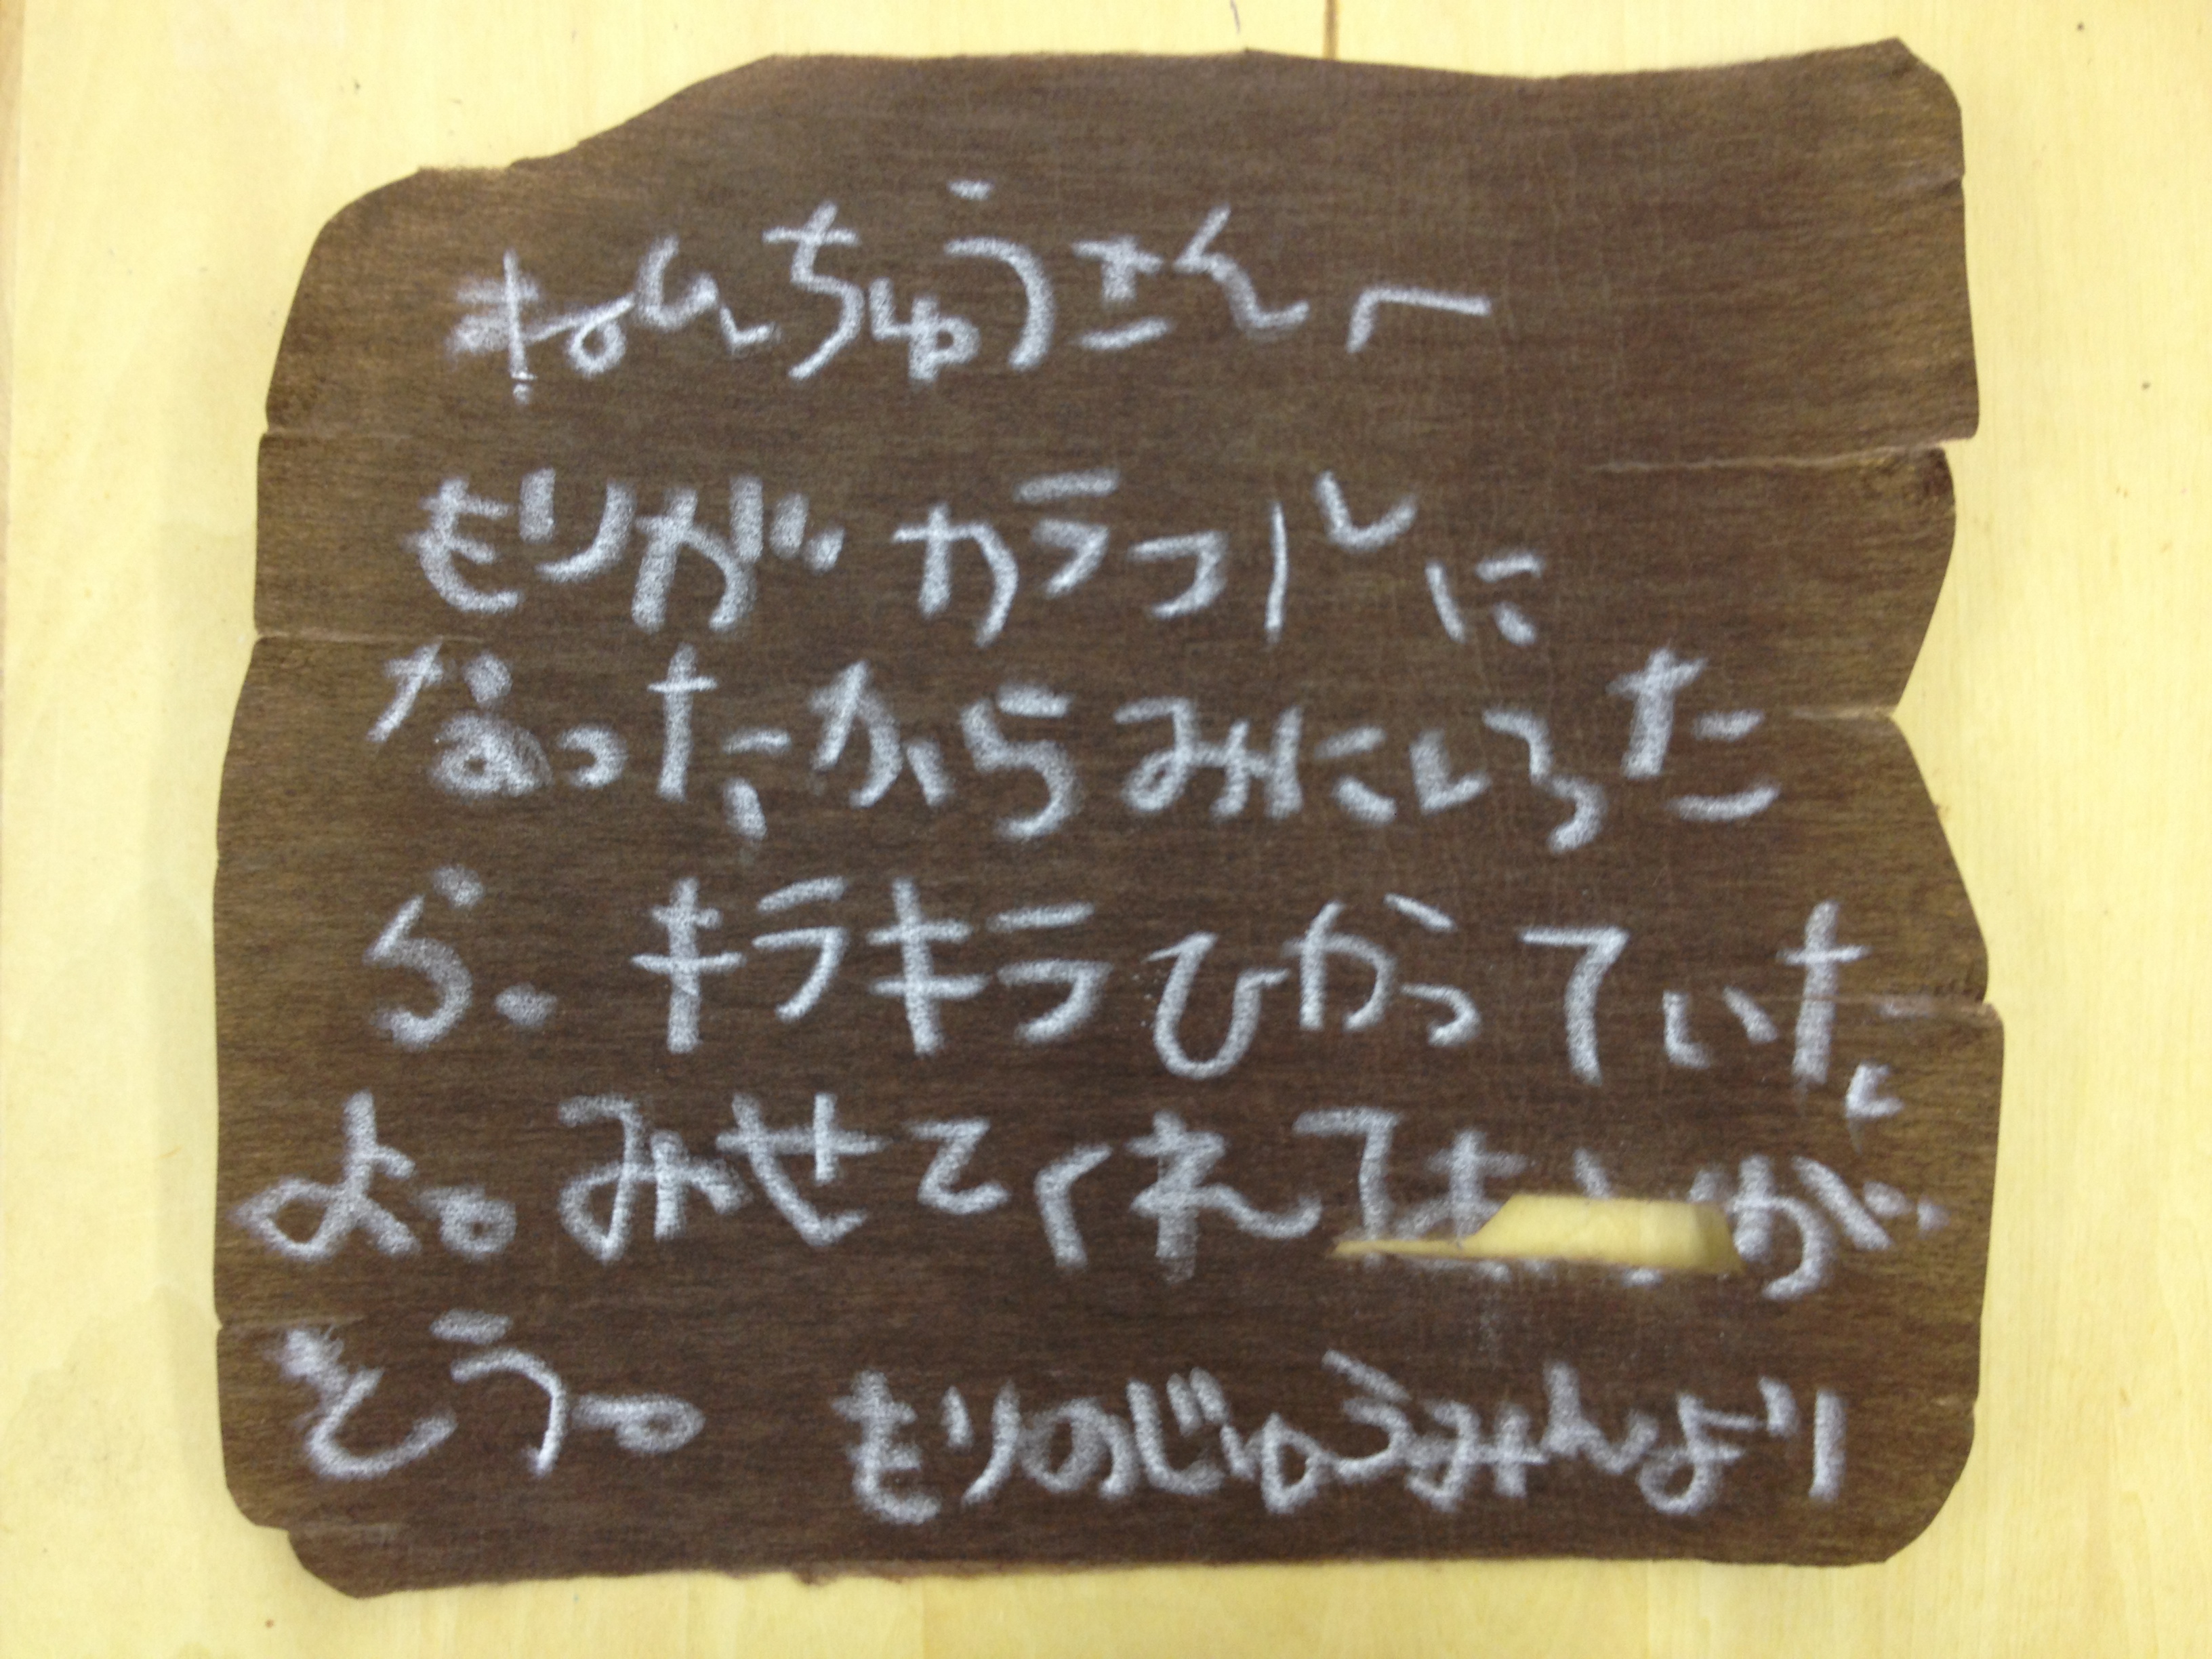 ねんちゅうさんへ
もりがカラフルに
なったからみにいった
ら、キラキラひかっていた
よ。みせてくれて
とう。 もりのじゅうみんより